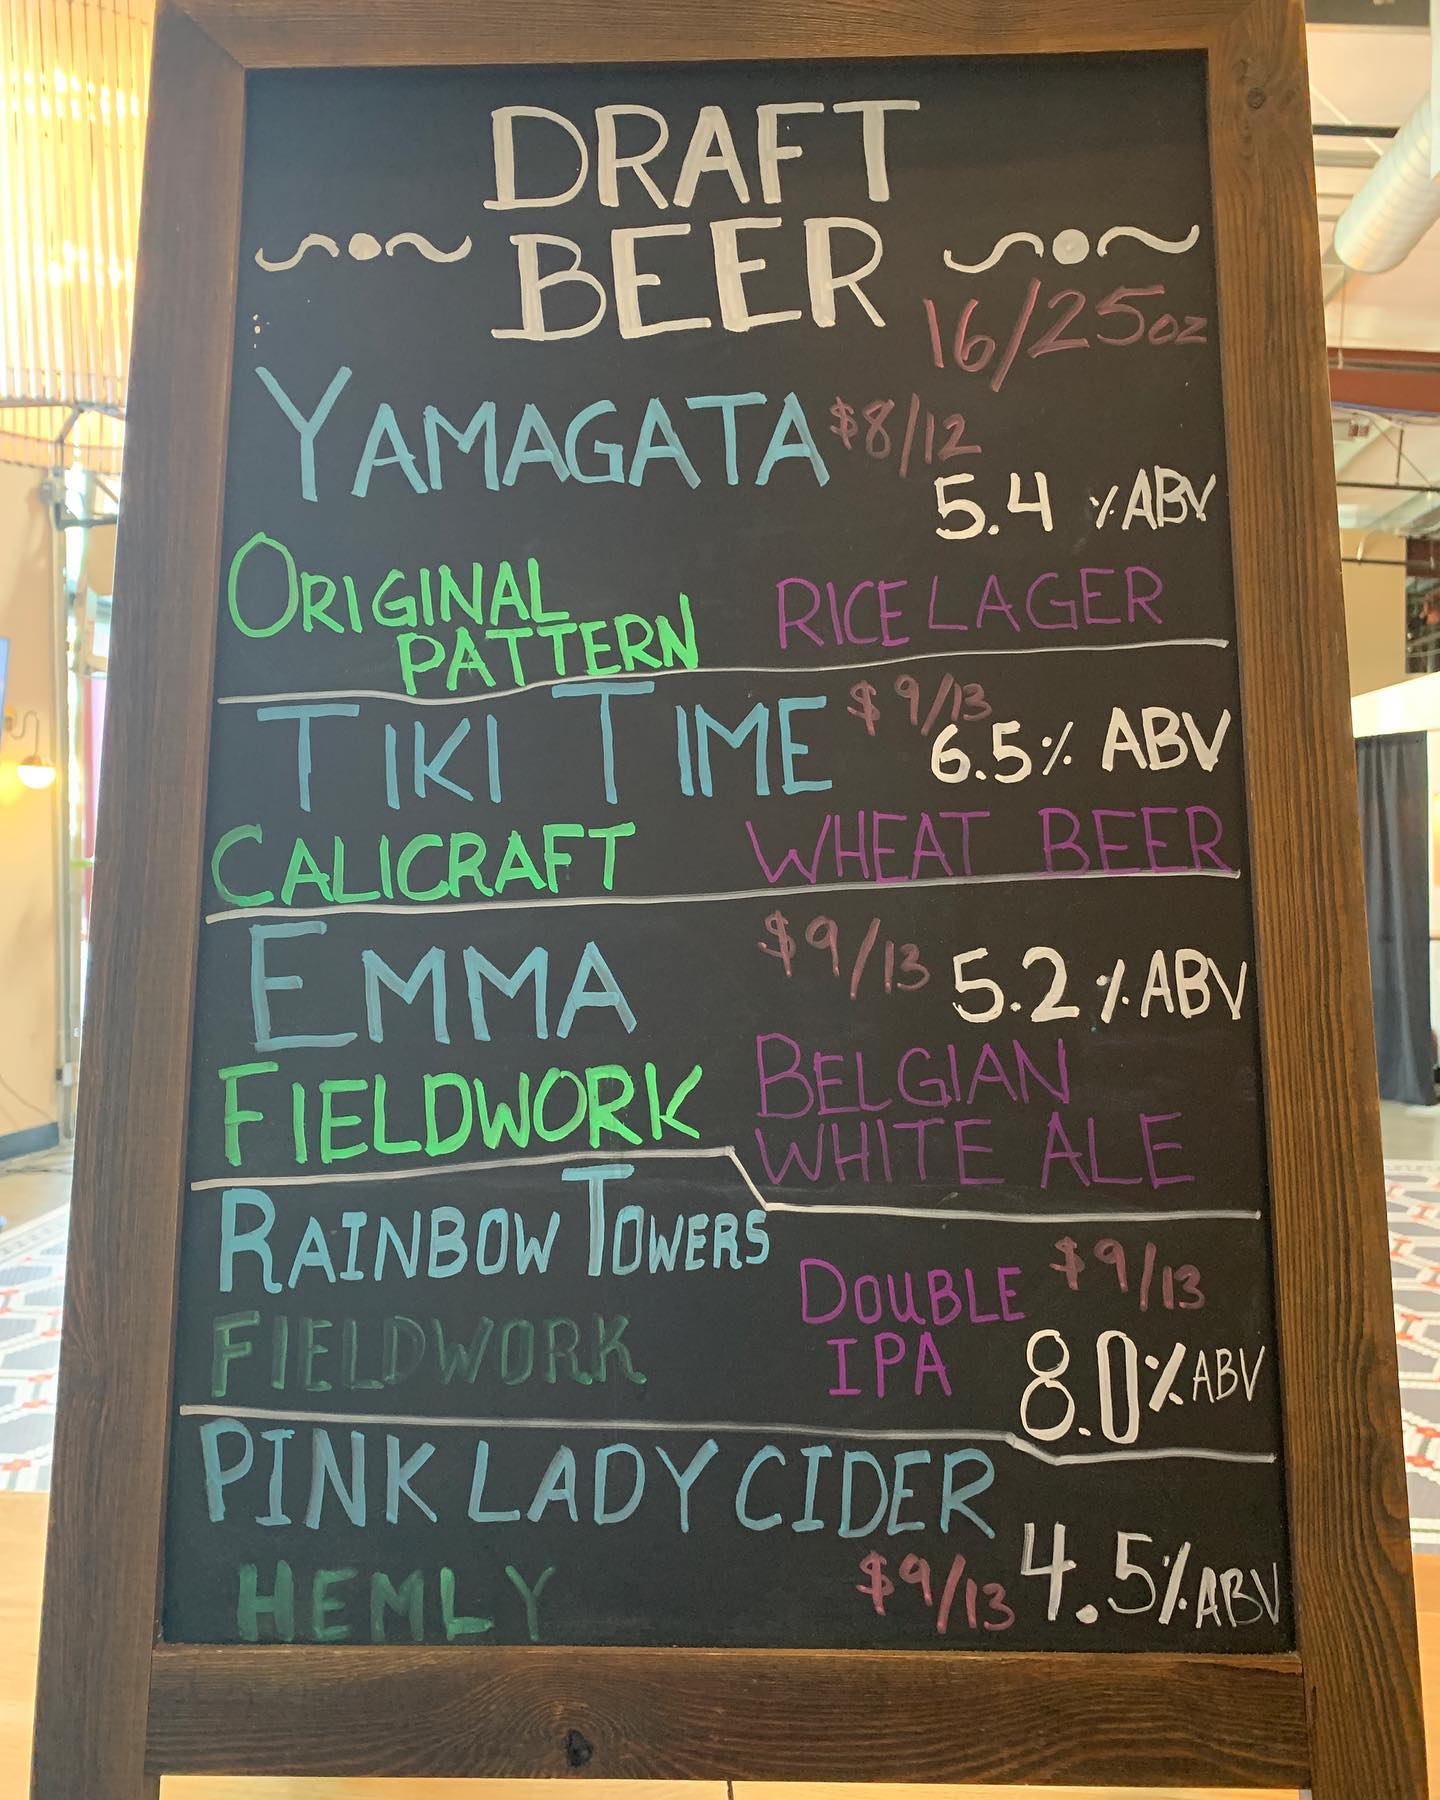 DRAFT
BEER
16/25oz
YAMAGATA $8/12
5.4 % ABV
ORIGINAL
PATTERN
RICE LAGER
TIKI TIME $9/13
6.5% ABV
CALICRAFT WHEAT BEER
EMMA $9/13 5.2% ABV
FIELDWORK
BELGIAN
WHITE ALE
RAINBOW TOWERS
FIELDWORK
DOUBLE
IPA
$9/13
8.0% ABV
PINK LADY CIDER
HEMLY $9/13 4.5% ABV